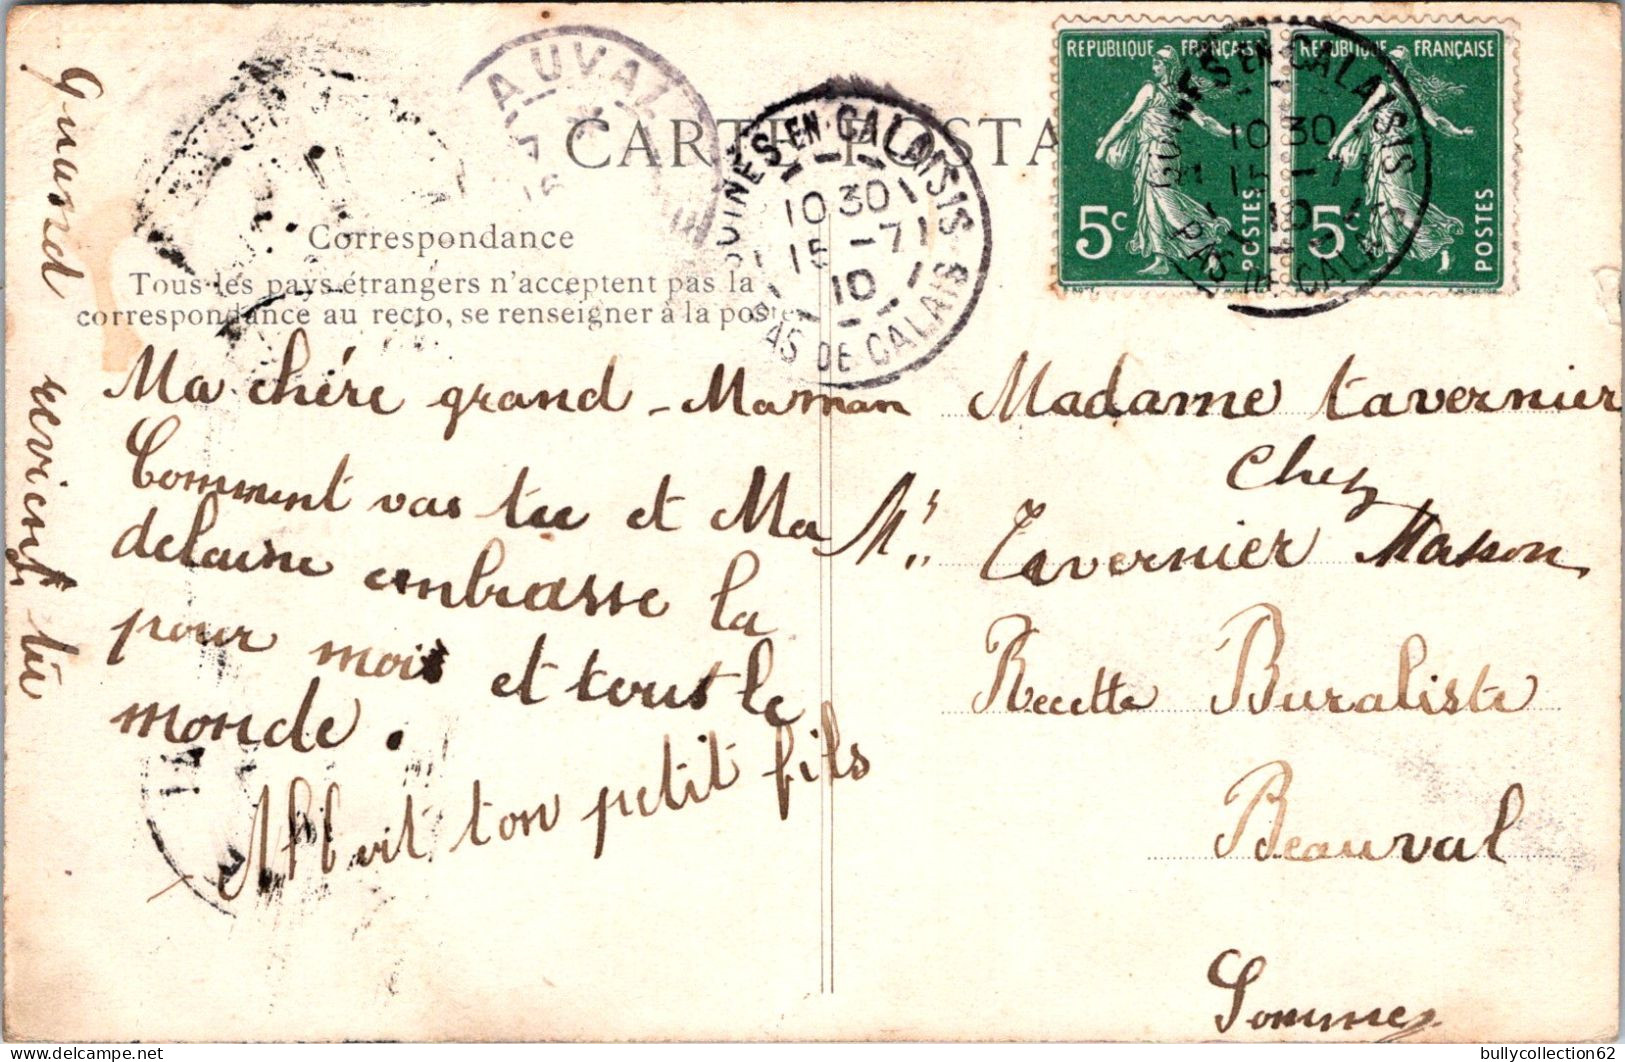 CARTE POSTA
Correspondance
Tous les pays étrangers n'acceptent pas la
correspondance au recto, se renseigner à la poste
AUVAL
GUINES-EN-CALAISIS
10 30
15 -7
10
PAS DE CALAIS
REPUBLIQUE FRANÇAISE
5c
POSTES
REPUBLIQUE FRANÇAISE
5c
POSTES
GUINES-EN-CALAISIS
10 30
15 -7
10
PAS DE CALAIS
Ma chére grand-Maman
Comment vas tu et Ma
delaine embrasse la
pour mois et tout le
monde.
Albert ton petit fils
Quand revient tu
Madame tavernier
chez
Mr. Tavernier Masson
Recette Buraliste
Beauval
Somme
bullycollection62